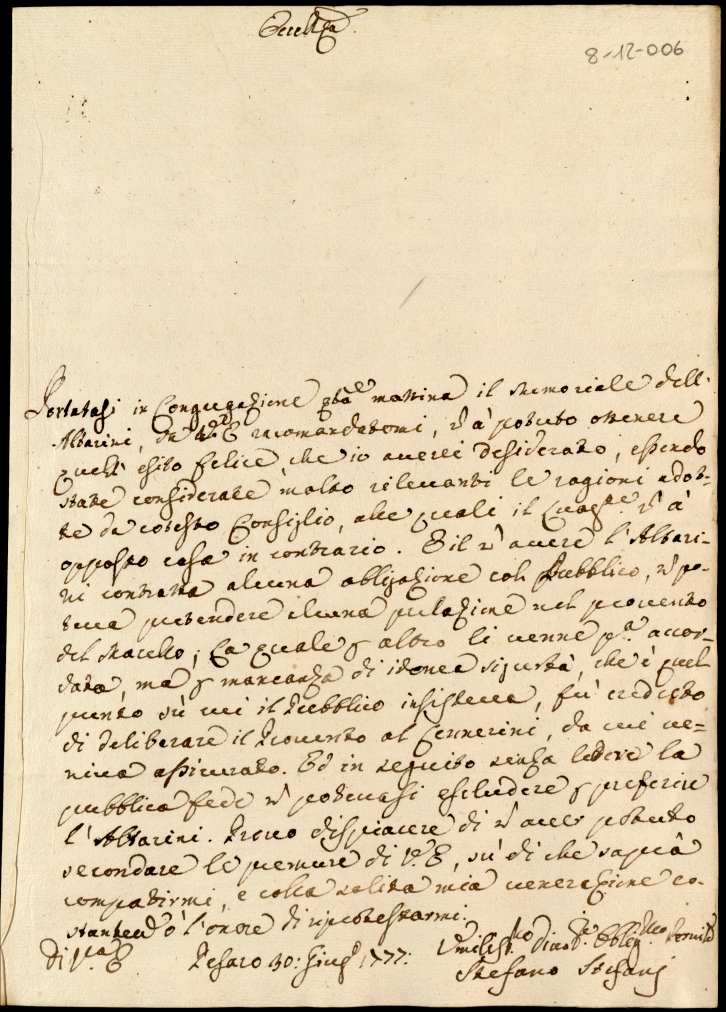 Eccell.za
8-12-006
Portatasi in Congregazione q.ta mattina il Memoriale dell'
Altarini, da V.E. racomandatomi, ñ à potuto ottenere
quell' esito felice, che io averei desiderato, essendo
state considerate molto rilevanti le ragioni adot-
te da cotesto Consiglio, alle quali il ñ à
opposto cosa in contrario. E il ñ avere l'Altari-
ni contratta alcuna obligazione col Pubblico, ñ po-
teva pretendere alcuna prelazione nel provento
del Macello; la quale p altro li venne p.a accor-
data, ma p mancanza di idonea sigurtà, che è quel
punto sù cui il Pubblico insisteva, fù creduto
di deliberare il Provento al Cennerini, da cui ve-
niva assicurato. Ed in seguito senza ledere la
pubblica fede ñ potevasi escludere p preferire
l'Altarini. Provo dispiacere di ñ aver potuto
secondare le premure di V.E, sù di che saprà
compatirmi, e colla solita mia venerazione co-
stantem ò l'onore di riprotestarmi.
Di V.ra E Pesaro 30: Giug.o 1777: Umiliss.mo Divot.o Oblig.mo Servit.e
Stefano Stefani